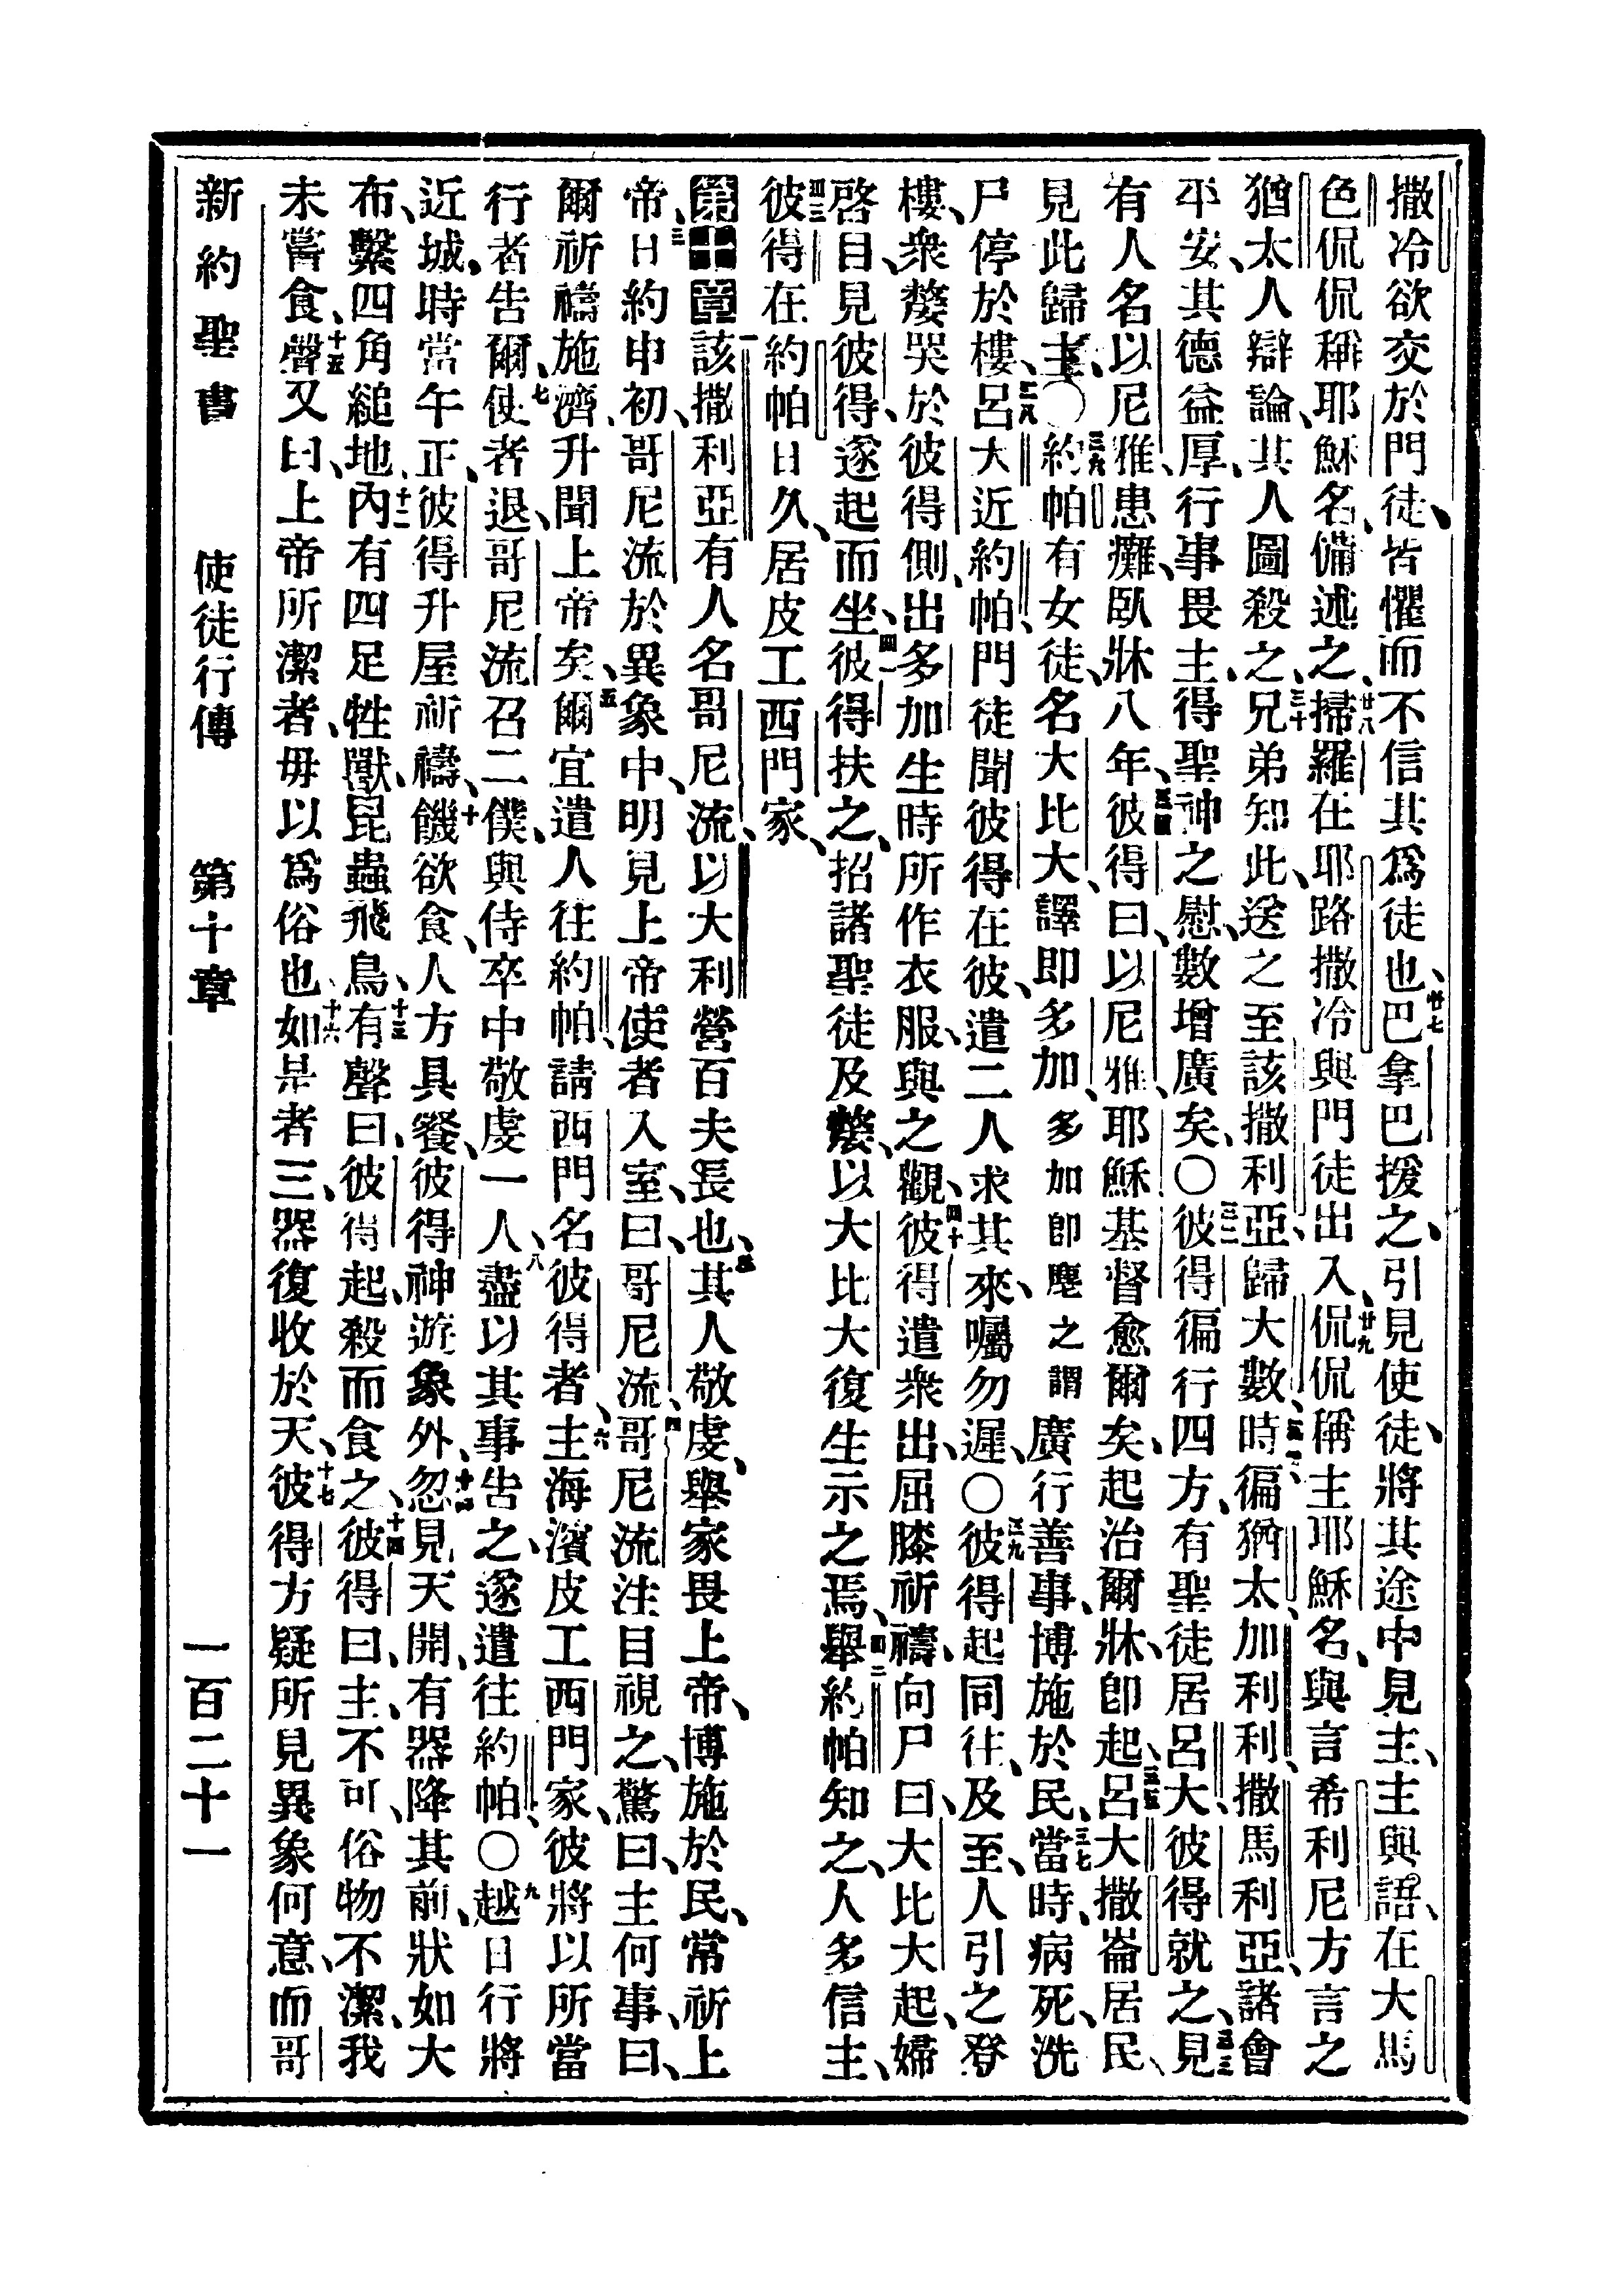 撒冷欲交於門徒、皆懼而不信其爲徒也、廿七巴拿巴援之、引見使徒、將其途中見主、主與語、在大馬
色侃侃稱耶穌名、備述之、廿八掃羅在耶路撒冷與門徒出入、廿九侃侃稱主耶穌名、與言希利尼方言之
猶太人辯論、其人圖殺之、三十兄弟知此、送之至該撒利亞、歸大數、時三一徧猶太、加利利、撒馬利亞、諸會
平安、其德益厚、行事畏主、得聖神之慰、數增廣矣、○三二彼得徧行四方、有聖徒居呂大、彼得就之、三三見
有人名以尼雅、患癱、臥牀八年、三四彼得曰、以尼雅、耶穌基督愈爾矣、起治爾牀、卽起、三五呂大撒崙居民、
見此歸主、○三六約帕有女徒、名大比大、譯卽多加、多加卽麀之謂廣行善事、博施於民、三七當時、病死、洗
尸停於樓、三八呂大近約帕、門徒聞彼得在彼、遣二人求其來、囑勿遲、○三九彼得起同往、及至、人引之登
樓、衆嫠哭於彼得側、出多加生時所作衣服、與之觀、四十彼得遣衆出、屈膝祈禱、向尸曰、大比大起、婦
啓目、見彼得、遂起而坐、四一彼得扶之、招諸聖徒及嫠、以大比大復生示之焉、四二舉約帕知之、人多信主、
四三彼得在約帕日久、居皮工西門家、
第十章一該撒利亞有人名哥尼流、以大利營百夫長也、二其人敬虔、舉家畏上帝、博施於民、常祈上
帝、三日約申初、哥尼流於異象中、明見上帝使者入室、曰、哥尼流、四哥尼流注目視之、驚曰、主何事、曰、
爾祈禱施濟、升聞上帝矣、五爾宜遣人往約帕、請西門名彼得者、六主海濱皮工西門家、彼將以所當
行者告爾、七使者退、哥尼流召二僕、與侍卒中敬虔一人、八盡以其事告之、遂遣往約帕、○九越日行將
近城、時當午正、彼得升屋祈禱、十饑欲食、人方具餐、彼得神遊象外、十一忽見天開、有器降其前、狀如大
布、繫四角縋地、十二內有四足牲獸、昆蟲飛鳥、十三有聲曰、彼得起、殺而食之、十四彼得曰、主、不可、俗物不潔、我
未嘗食、十五聲又曰、上帝所潔者、毋以爲俗也、十六如是者三、器復收於天、十七彼得方疑所見異象何意、而哥
新約聖書 使徒行傳 第十章 一百二十一